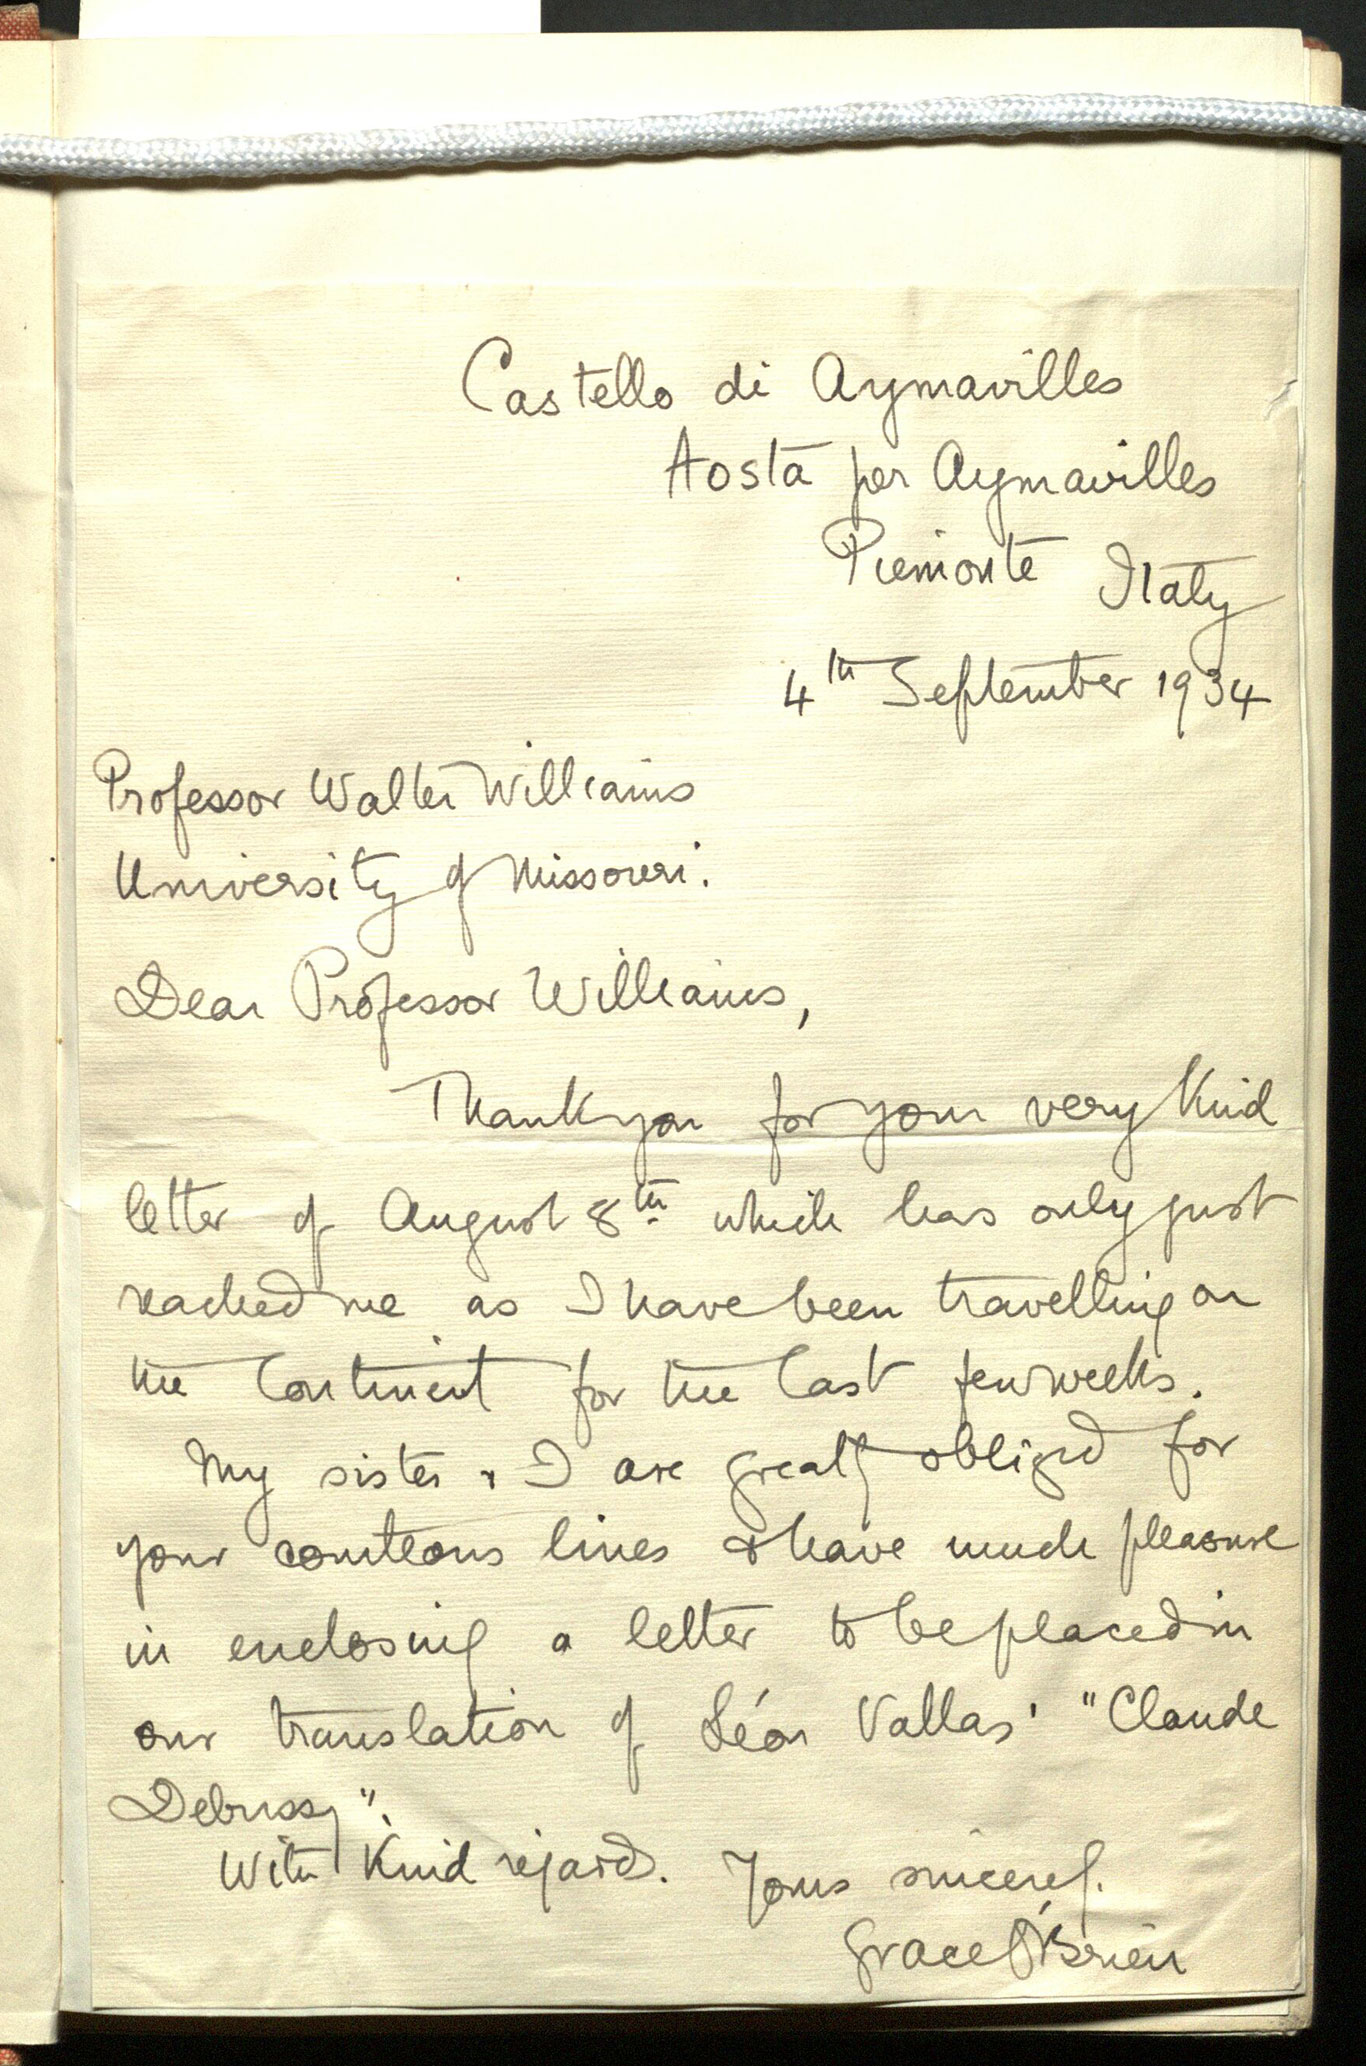 Castello di Aymavilles
Aosta per Aymavilles
Piemonte Italy
4th September 1934
Professor Walter Williams
University of Missouri.
Dear Professor Williams,
Thank you for your very kind
letter of August 8th which has only just
reached me as I have been travelling on
the Continent for the last few weeks.
My sister & I are greatly obliged for
your courteous lines & have much pleasure
in enclosing a letter to be placed in
our translation of Léon Vallas' "Claude
Debussy".
With kind regards. Yours sincerely.
Grace O'Brien